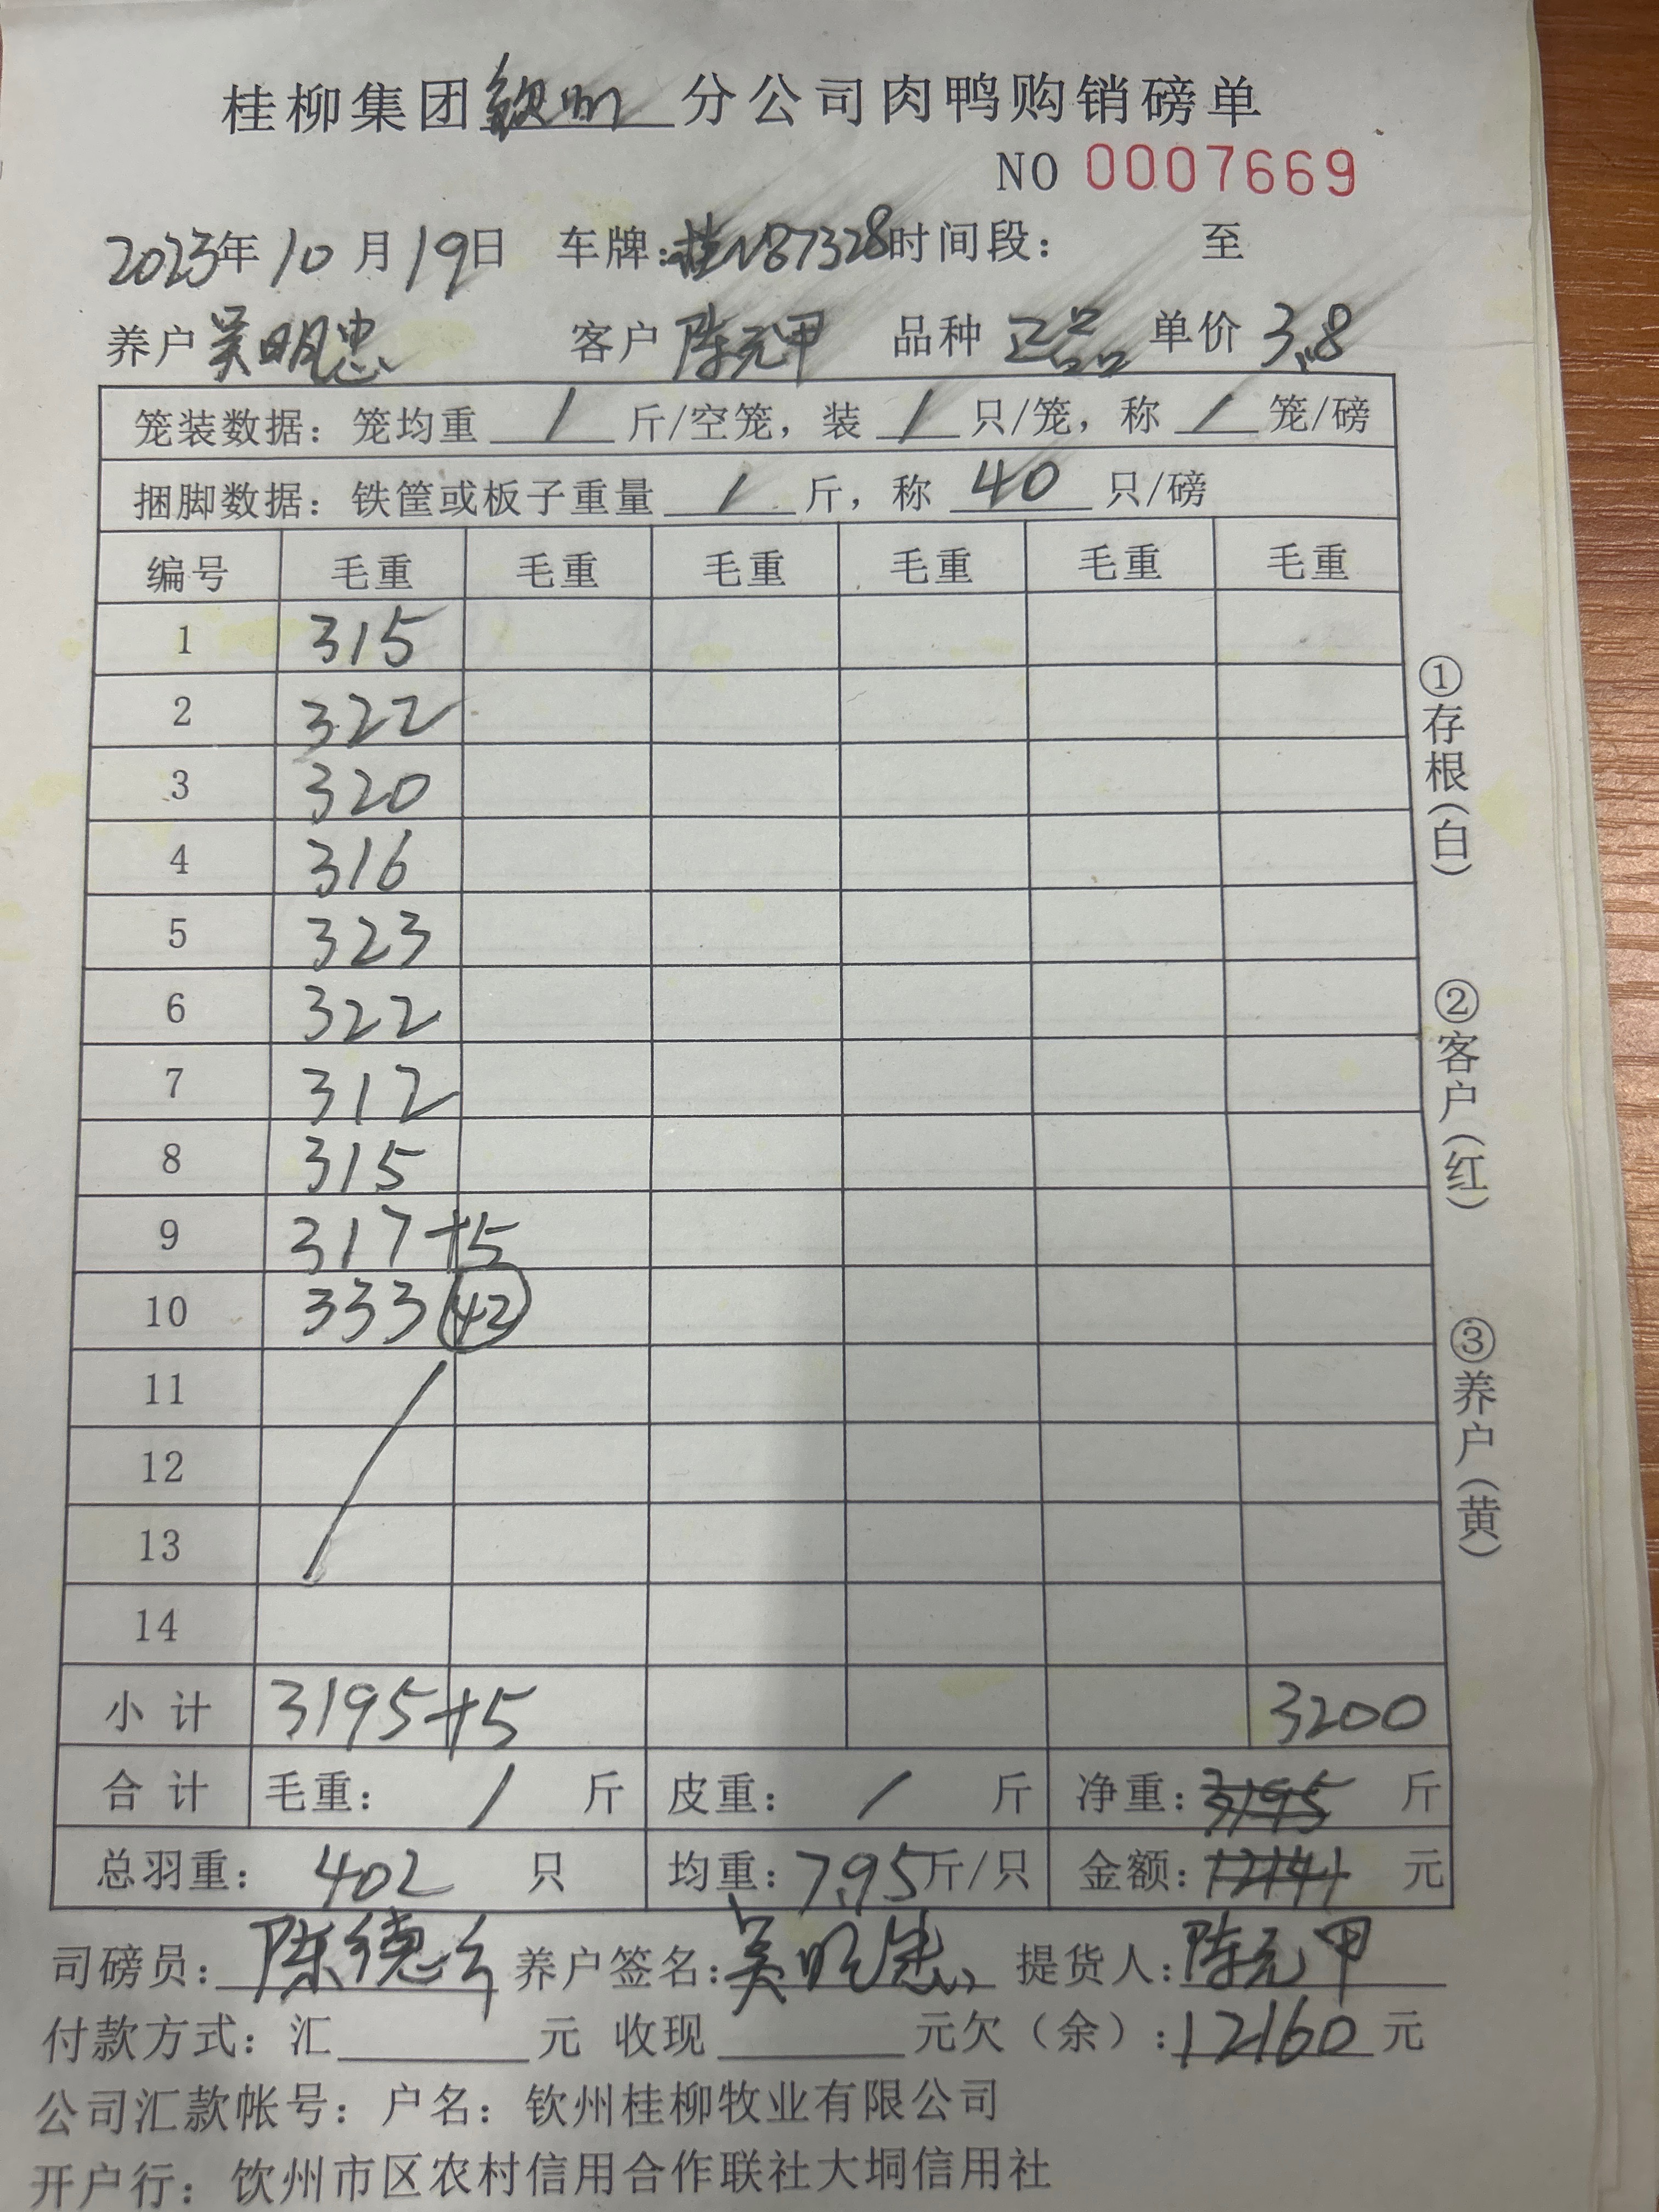 桂柳集团钦州分公司肉鸭购销磅单
NO 0007669
2023年10月19日 车牌:桂N87328时间段: 至
养户吴明忠 客户陈元甲 品种 正品 单价 3.8
笼装数据: 笼均重 / 斤/空笼, 装 / 只/笼, 称 / 笼/磅
捆脚数据: 铁筐或板子重量 / 斤, 称 40 只/磅
编号 毛重 毛重 毛重 毛重 毛重 毛重
1 315
2 322
3 320
4 316
5 323
6 322
7 312
8 315
9 317+5
10 333 42
11
12
13
14
小计 3195+5 3200
合计 毛重: / 斤 皮重: / 斤 净重:3195 斤
总羽重: 402 只 均重:7.95斤/只 金额:12141 元
司磅员:陈德 养户签名:吴明忠 提货人:陈元甲
付款方式: 汇 元 收现 元欠(余):12160元
公司汇款帐号: 户名: 钦州桂柳牧业有限公司
开户行: 饮州市区农村信用合作联社大垌信用社
①存根(白)
②客户(红)
③养户(黄)